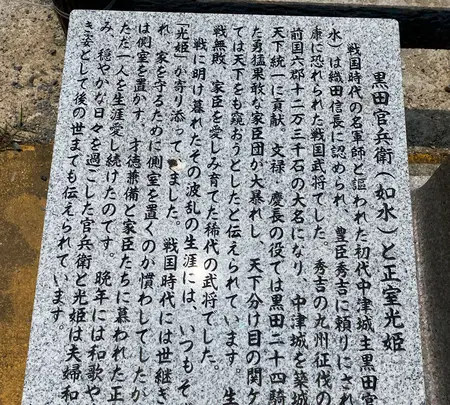 黒田官兵衛(如水)と正室光姫
戦国時代の名軍師と謳われた初代中津城主黒田官
水)は織田信長に認められ、豊臣秀吉に頼りにされ
康に恐れられた戦国武将でした。秀吉の九州征伐の
前国六郡十二万三千石の大名になり、中津城を築城
天下統一に貢献。文禄、慶長の役では黒田二十四騎
た勇猛果敢な家臣団が大暴れし、天下分け目の関ケ
ては天下をも窺おうとしたと伝えられています。生
戦無敗、家臣を愛しみ育てた稀代の武将でした。
戦に明け暮れたその波乱の生涯には、いつもそ
「光姫」が寄り添って
ました。戦国時代には世継ぎ
れ、家を守るために側室を置くのが慣わしでしたが
は側室を置かず、才徳兼備と家臣たちに慕われた正
ただ一人を生涯愛し続けたのです。晩年には和歌や
み、穏やかな日々を過ごした官兵衛と光姫は夫婦和
き姿として後の世までも伝えられています。